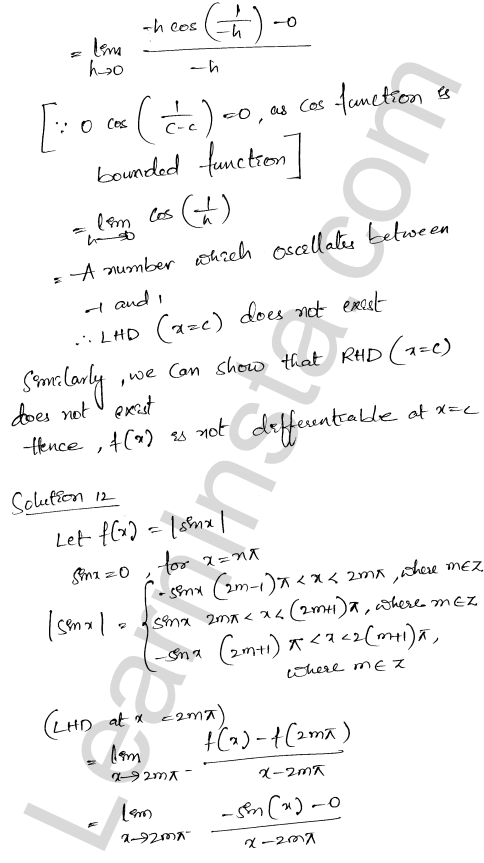 = lim h→0 (-h cos(1/-h) - 0)/(-h)
[∵ 0 cos(1/(c-c)) = 0, as cos function is
bounded function]
= lim h→0 cos(1/h)
= A number which oscillates between
-1 and 1
∴ LHD (x=c) does not exist
Similarly, we can show that RHD (x=c)
does not exist
Hence, f(x) is not differentiable at x=c
Solution 12
Let f(x) = |sinx|
sinx=0, for x=nπ
|sinx| = { -sinx (2m-1)π < x < 2mπ, where m∈Z
sinx 2mπ < x < (2m+1)π, where m∈Z
-sinx (2m+1)π < x < 2(m+1)π,
where m∈Z
(LHD at x = 2mπ)
= lim x→2mπ⁻ (f(x) - f(2mπ))/(x-2mπ)
= lim x→2mπ⁻ (-sin(x) - 0)/(x-2mπ)
LearnInsta.com